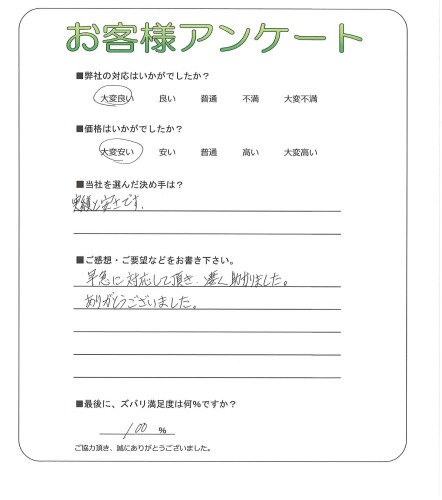 お客様アンケート
■弊社の対応はいかがでしたか？
大変良い 良い 普通 不満 大変不満
■価格はいかがでしたか？
大変安い 安い 普通 高い 大変高い
■当社を選んだ決め手は？
実績と安さです。
■ご感想・ご要望などをお書き下さい。
早急に対応して頂き、 助かりました。
ありがとうございました。
■最後に、ズバリ満足度は何%ですか？
100 %
ご協力頂き、誠にありがとうございました。